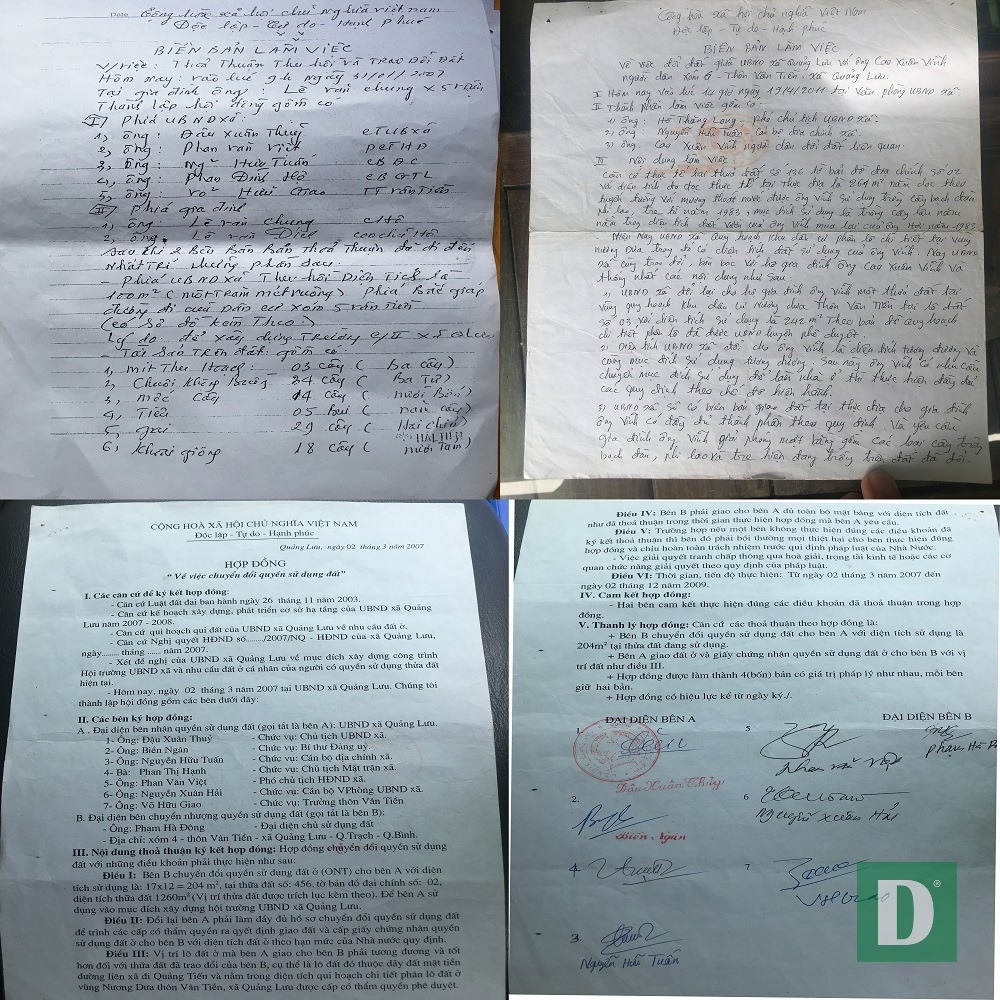 Date Cộng hòa xã hội chủ nghĩa việt nam
Độc lập - Tự do - Hạnh phúc
BIÊN BẢN LÀM VIỆC
V/việc: Thỏa Thuận Thu hồi và Trao đổi Đất
Hôm nay: vào lúc 9h ngày 31/01/2007
Tại gia đình ông: Lê văn chung x5 v tiền
Thành lập hội đồng gồm có
I) Phía UBND xã:
1, ông: Đậu Xuân Thuỷ CTUB xã
2, ông: Phan văn Việt PCTHĐ
3, ông: Ng~ Hữu Tuấn CB ĐC
4, ông: Phan Đình Hồ CB GTL
5, ông: Võ Hữu Giao TT Văn Tiền
II) Phía gia đình
1, ông Lê văn chung c Hộ
2, ông: Lê văn Dict con chủ Hộ
Sau khi 2 Bên Bàn Bạn Thoả Thuận đã đi đến
Nhất Trí những phần sau.
- Phía UBND xã Thu hồi Diện Tích là
100m² (một trăm mét vuông) Phía Bắc giáp
đường đi của Dân cư xóm 5 văn Tiền
(có sơ đồ kèm Theo.)
Lý do: để xây dựng Trường C/II x5 Q Lưu
- Tài sản Trên đất: gồm có.
1, mít Thu Hoạch: 03 cây ( Ba cây)
2, Chuối 34 cây ( Ba Tư)
3, móc cây 14 cây ( mười Bốn)
4, Tiêu 05 bụi ( năm cây)
5, 29 cây ( Hai chín)
6, 18 cây ( mười Tám)
Cộng hòa xã hội chủ nghĩa Việt Nam
Độc lập - Tự do - Hạnh phúc
BIÊN BẢN LÀM VIỆC
Về việc đổi đất giữa UBND xã Quảng Lưu với ông Cao Xuân Vinh
người dân xóm 6 - Thôn Văn Tiền - xã Quảng Lưu.
I Hôm nay vào lúc 7 giờ ngày 19/4/2011 tại Văn phòng UBND xã
II Thành phần làm việc gồm có.
1) Ông: Hồ Thăng Long - Phó chủ tịch UBND xã.
2) Ông: Nguyễn Hữu Tuấn Cán bộ địa chính xã.
3) Ông: Cao Xuân Vinh người dân đổi đất liên quan.
III Nội dung làm việc
Căn cứ thực tế tại thửa đất số 136 tờ bản đồ địa chính số 02
Với diện tích đo đạc thực tế tại thực địa là 264 m² nằm dọc theo
tuyến đường với mương thoát nước được ông Vinh sử dụng trồng cây bạch đàn
Phi lao, tre từ năm 1983, mục đích sử dụng là trồng cây lâu năm
nằm trong diện tích đất vườn của ông Vinh mua lại của ông Hới năm 1983
Hiện nay UBND xã Quy hoạch khu dân cư phân lô chi tiết tại vùng
nương Dưa trong đó có diện tích đất sử dụng của ông Vinh. Nay UBND
xã cùng trao đổi, bàn bạc với hộ gia đình ông Cao Xuân Vinh và
thống nhất các nội dung như sau.
1) UBND xã đổi lại cho hộ gia đình ông Vinh một thửa đất tại
vùng quy hoạch khu dân cư Nương dưa Thôn Văn Tiền tại lô đất
số 03 với diện tích sử dụng là 242 m² Theo bản đồ quy hoạch
chi tiết phân lô đã được UBND huyện phê duyệt.
2) Diện tích UBND xã đổi cho ông Vinh là diện tích tương đương và
cùng mục đích sử dụng tương đương. Sau này ông Vinh có nhu cầu
chuyển mục đích sử dụng để làm nhà ở thì thực hiện đầy đủ
các quy định theo chế độ hiện hành.
3) UBND xã sẽ có biên bản giao đất tại thực địa cho gia đình
ông Vinh có đầy đủ thành phần theo quy định. Và yêu cầu
gia đình ông Vinh giải phóng mặt bằng gồm các loại cây trồng
bạch đàn, phi lao và tre hiện đang trồng trên đất đã đổi.
CỘNG HOÀ XÃ HỘI CHỦ NGHĨA VIỆT NAM
Độc lập - Tự do - Hạnh phúc
Quảng Lưu, ngày 02 tháng 3 năm 2007
HỢP ĐỒNG
"Về việc chuyển đổi quyền sử dụng đất"
I. Các căn cứ để ký kết hợp đồng:
- Căn cứ Luật đất đai ban hành ngày 26 tháng 11 năm 2003.
- Căn cứ kế hoạch xây dựng, phát triển cơ sở hạ tầng của UBND xã Quảng
Lưu năm 2007 - 2008.
- Căn cứ qui hoạch qui đất của UBND xã Quảng Lưu về nhu cầu đất ở.
- Căn cứ Nghị quyết HĐND số......../2007/NQ - HĐND của xã Quảng Lưu,
ngày........ tháng ...... năm 2007.
- Xét đề nghị của UBND xã Quảng Lưu về mục đích xây dựng công trình
Hội trường UBND xã và nhu cầu đất ở cá nhân của người có quyền sử dụng thửa đất
hiện tại.
- Hôm nay, ngày 02 tháng 3 năm 2007 tại UBND xã Quảng Lưu. Chúng tôi
thành lập hội đồng gồm các bên dưới đây:
II. Các bên ký hợp đồng:
A . Đại diện bên nhận quyền sử dụng đất (gọi tắt là bên A): UBND xã Quảng Lưu.
1- Ông: Đậu Xuân Thuỷ - Chức vụ: Chủ tịch UBND xã.
2- Ông: Biển Ngân - Chức vụ: Bí thư Đảng uỷ.
3- Ông: Nguyễn Hữu Tuấn - Chức vụ: Cán bộ địa chính xã.
4- Bà: Phan Thị Hạnh - Chức vụ: Chủ tịch Mặt trận xã.
5- Ông: Phan Văn Việt - Phó chủ tịch HĐND xã.
6- Ông: Nguyễn Xuân Hải - Chức vụ: Cán bộ VPhòng UBND xã.
7- Ông: Võ Hữu Giao - Chức vụ: Trưởng thôn Vân Tiền
B. Đại diện bên chuyển nhượng quyền sử dụng đất (gọi tắt là bên B):
- Ông: Phạm Hà Đông - Đại diện chủ sử dụng đất
- Địa chỉ: xóm 4 - thôn Vân Tiền - xã Quảng Lưu - Q.Trạch - Q.Bình.
III. Nội dung thoả thuận ký kết hợp đồng: Hợp đồng chuyển đổi quyền sử dụng
đất với những điều khoản phải thực hiện như sau:
Điều I: Bên B chuyển đổi quyền sử dụng đất ở (ONT) cho bên A với diện
tích sử dụng là: 17x12 = 204 m², tại thửa đất số: 456, tờ bản đồ đại chính số: 02,
diện tích thửa đất 1260m² (Vị trí thửa đất được trích lục kèm theo). Để bên A sử
dụng vào mục đích xây dựng hội trường UBND xã Quảng Lưu.
Điều II: Đổi lại bên A phải làm đầy đủ hồ sơ chuyển đổi quyền sử dụng đất
để trình các cấp có thẩm quyền ra quyết định giao đất và cấp giấy chứng nhận quyền
sử dụng đất ở cho bên B với diện tích đất ở theo hạn mức của Nhà nước quy định.
Điều III: Vị trí lô đất ở mà bên A giao cho bên B phải tương đương và tốt
hơn đối với thửa đất đã trao đổi của bên B, cụ thể là lô đất đó thuộc dãy đất mặt tiền
đường liên xã đi Quảng Tiến và nằm trong diện tích qui hoạch chi tiết phân lô đất ở
vùng Nương Dưa thôn Vân Tiền, xã Quảng Lưu được cấp có thẩm quyền phê duyệt.
Điều IV: Bên B phải giao cho bên A đủ toàn bộ mặt bằng với diện tích đất
như đã thoả thuận trong thời gian thực hiện hợp đồng mà bên A yêu cầu.
Điều V: Trường hợp nếu một bên không thực hiện đúng các điều khoản đã
ký kết thoả thuận thì bên đó phải bồi thường mọi thiệt hại cho bên thực hiện đúng
hợp đồng và chịu hoàn toàn trách nhiệm trước qui định pháp luật của Nhà Nước.
- Việc giải quyết tranh chấp thông qua hoà giải, trọng tài kinh tế hoặc các cơ
quan chức năng giải quyết theo quy định của pháp luật.
Điều VI: Thời gian, tiến độ thực hiện: Từ ngày 02 tháng 3 năm 2007 đến
ngày 02 tháng 12 năm 2009.
IV. Cam kết hợp đồng:
- Hai bên cam kết thực hiện đúng các điều khoản đã thoả thuận trong hợp
đồng.
V. Thanh lý hợp đồng: Căn cứ các thoả thuận theo hợp đồng là:
+ Bên B chuyển đổi quyền sử dụng đất cho bên A với diện tích sử dụng là
204m² tại thửa đất đang sử dụng.
+ Bên A giao đất ở và giấy chứng nhận quyền sử dụng đất ở cho bên B với vị
trí đất như điều III.
+ Hợp đồng được làm thành 4(bốn) bản có giá trị pháp lý như nhau, mỗi bên
giữ hai bản.
+ Hợp đồng có hiệu lực kể từ ngày ký./.
ĐẠI DIỆN BÊN A ĐẠI DIỆN BÊN B
1. 5
Đậu Xuân Thủy Phan văn Việt Phạm Hà Đông
2. 6
Biển Ngân Nguyễn Xuân Hải
4. 7
3.
Nguyễn Hữu Tuấn
D